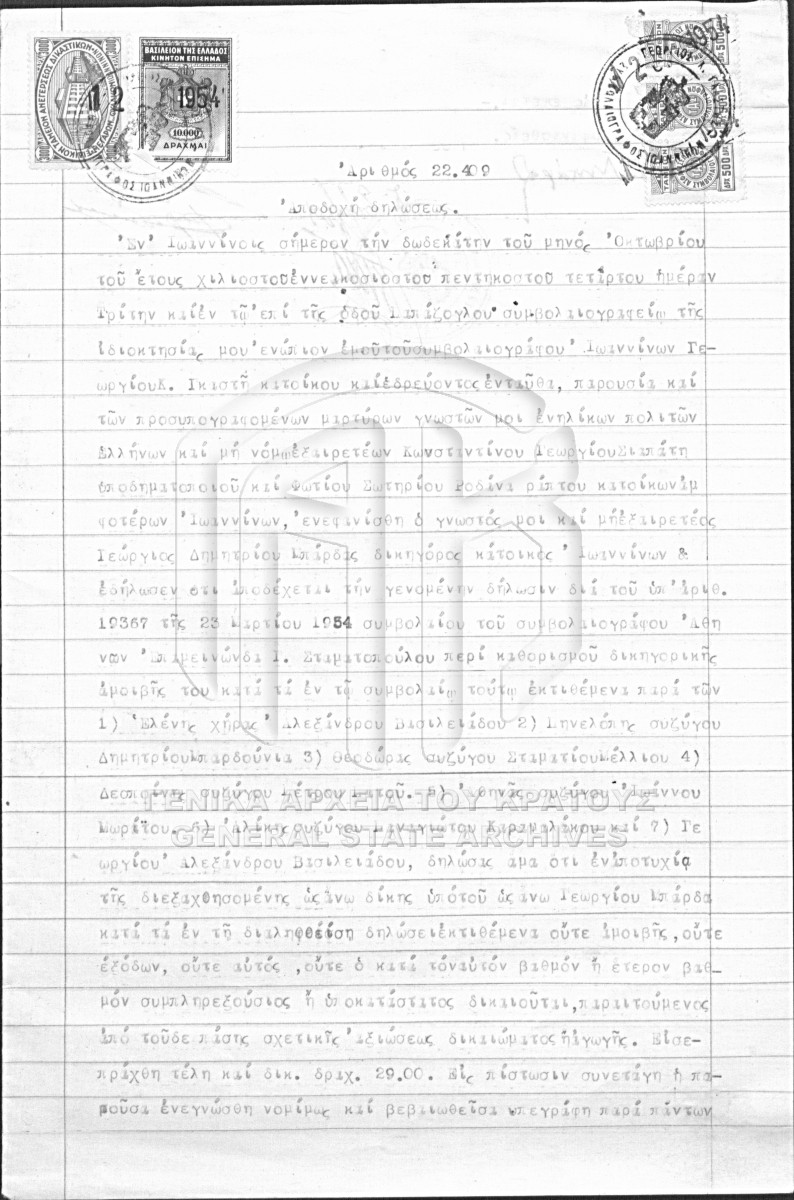 ΒΑΣΙΛΕΙΟΝ ΤΗΣ ΕΛΛΑΔΟΣ
ΚΙΝΗΤΟΝ ΕΠΙΣΗΜΑ
12 1954
10.000
ΔΡΑΧΜΑΙ
1954
Ἀριθμός 22.409
Ἀποδοχή δηλώσεως.
Ἐν Ἰωαννίνοις σήμερον τήν δωδεκάτην τοῦ μηνός Ὀκτωβρίου
τοῦ ἔτους χιλιοστοῦεννεακοσιοστοῦ πεντηκοστοῦ τετάρτου ἡμέραν
Τρίτην καίἐν τῷ ἐπί τῆς ὁδοῦ συμβολαιογραφείῳ τῆς
ἰδιοκτησίας μου ἐνώπιον ἐμοῦτοῦσυμβολαιογράφου Ἰωαννίνων Γε-
ωργίουΛ. Γκαστῆ κατοίκου καίἑδρεύοντοςἐνταῦθα, παρουσία καί
τῶν προσυπογραφομένων μαρτύρων γνωστῶν μοι ἐνηλίκων πολιτῶν
Ἑλλήνων καί μή νομῳἐξαιρετέων Κωνσταντίνου Γεωργίου
ὑποδηματοποιοῦ καί Φωτίου Σωτηρίου Ροδίνα ράπτου κατοίκωνἀμ
φοτέρων Ἰωαννίνων, ἐνεφανίσθη ὁ γνωστός μοι καί μήἐξαιρετέος
Γεώργιος Δημητρίου Μπάρδας δικηγόρος κάτοικος Ἰωαννίνων &
ἐδήλωσεν ὅτι ἀποδέχεται τήν γενομένην δήλωσιν διά τοῦ ὑπ'ἀριθ.
19367 τῆς 23 Μαρτίου 1954 συμβολαίου τοῦ συμβολαιογράφου Ἀθη
νῶν Ἐπαμεινώνδα Γ. Σταματοπούλου περί καθορισμοῦ δικηγορικῆς
ἀμοιβῆς του κατά τά ἐν τῷ συμβολαίῳ τούτῳ ἐκτιθέμενα παρά τῶν
1) Ἑλένης χήρας Ἀλεξάνδρου Βασιλειάδου 2) Πηνελόπης συζύγου
ΔημητρίουΜπαρδούνια 3) Θεοδώρας συζύγου ΣταματίουΜέλλιου 4)
Δεσποίνης συζύγου Πέτρου 5) Ἀθηνᾶς συζύγου Ἰωάννου
Μωραΐτου. 6) Ἀλίκης συζύγου Παναγιώτου Καραμαλίκου καί 7) Γε
ωργίου Ἀλεξάνδρου Βασιλειάδου, δηλώσας ἅμα ὅτι ἐνἀποτυχίᾳ
τῆς διεξαχθησομένης ὡςἄνω δίκης ὑπότοῦ ὡςἄνω Γεωργίου Μπάρδα
κατά τά ἐν τῇ διαληφθείσῃ δηλώσειἐκτιθέμενα οὔτε ἀμοιβῆς,οὔτε
ἐξόδων, οὔτε αὐτός ,οὔτε ὁ κατά τόναὐτόν βαθμόν ἤ ἕτερον βαθ-
μόν συμπληρεξούσιος ἤ ὑποκατάστατος δικαιοῦται,παραιτούμενος
ἀπό τοῦδε πάσης σχετικῆς ἀξιώσεως δικαιώματοςἤἀγωγῆς. Εἰσε-
πράχθη τέλη καί δικ. δραχ. 29.00. Εἰς πίστωσιν συνετάγη ἡ πα-
ροῦσα ἀνεγνώσθη νομίμως καί βεβαιωθεῖσα ὑπεγράφη παρά πάντων
ΓΕΝΙΚΑ ΑΡΧΕΙΑ ΤΟΥ ΚΡΑΤΟΥΣ
GENERAL STATE ARCHIVES